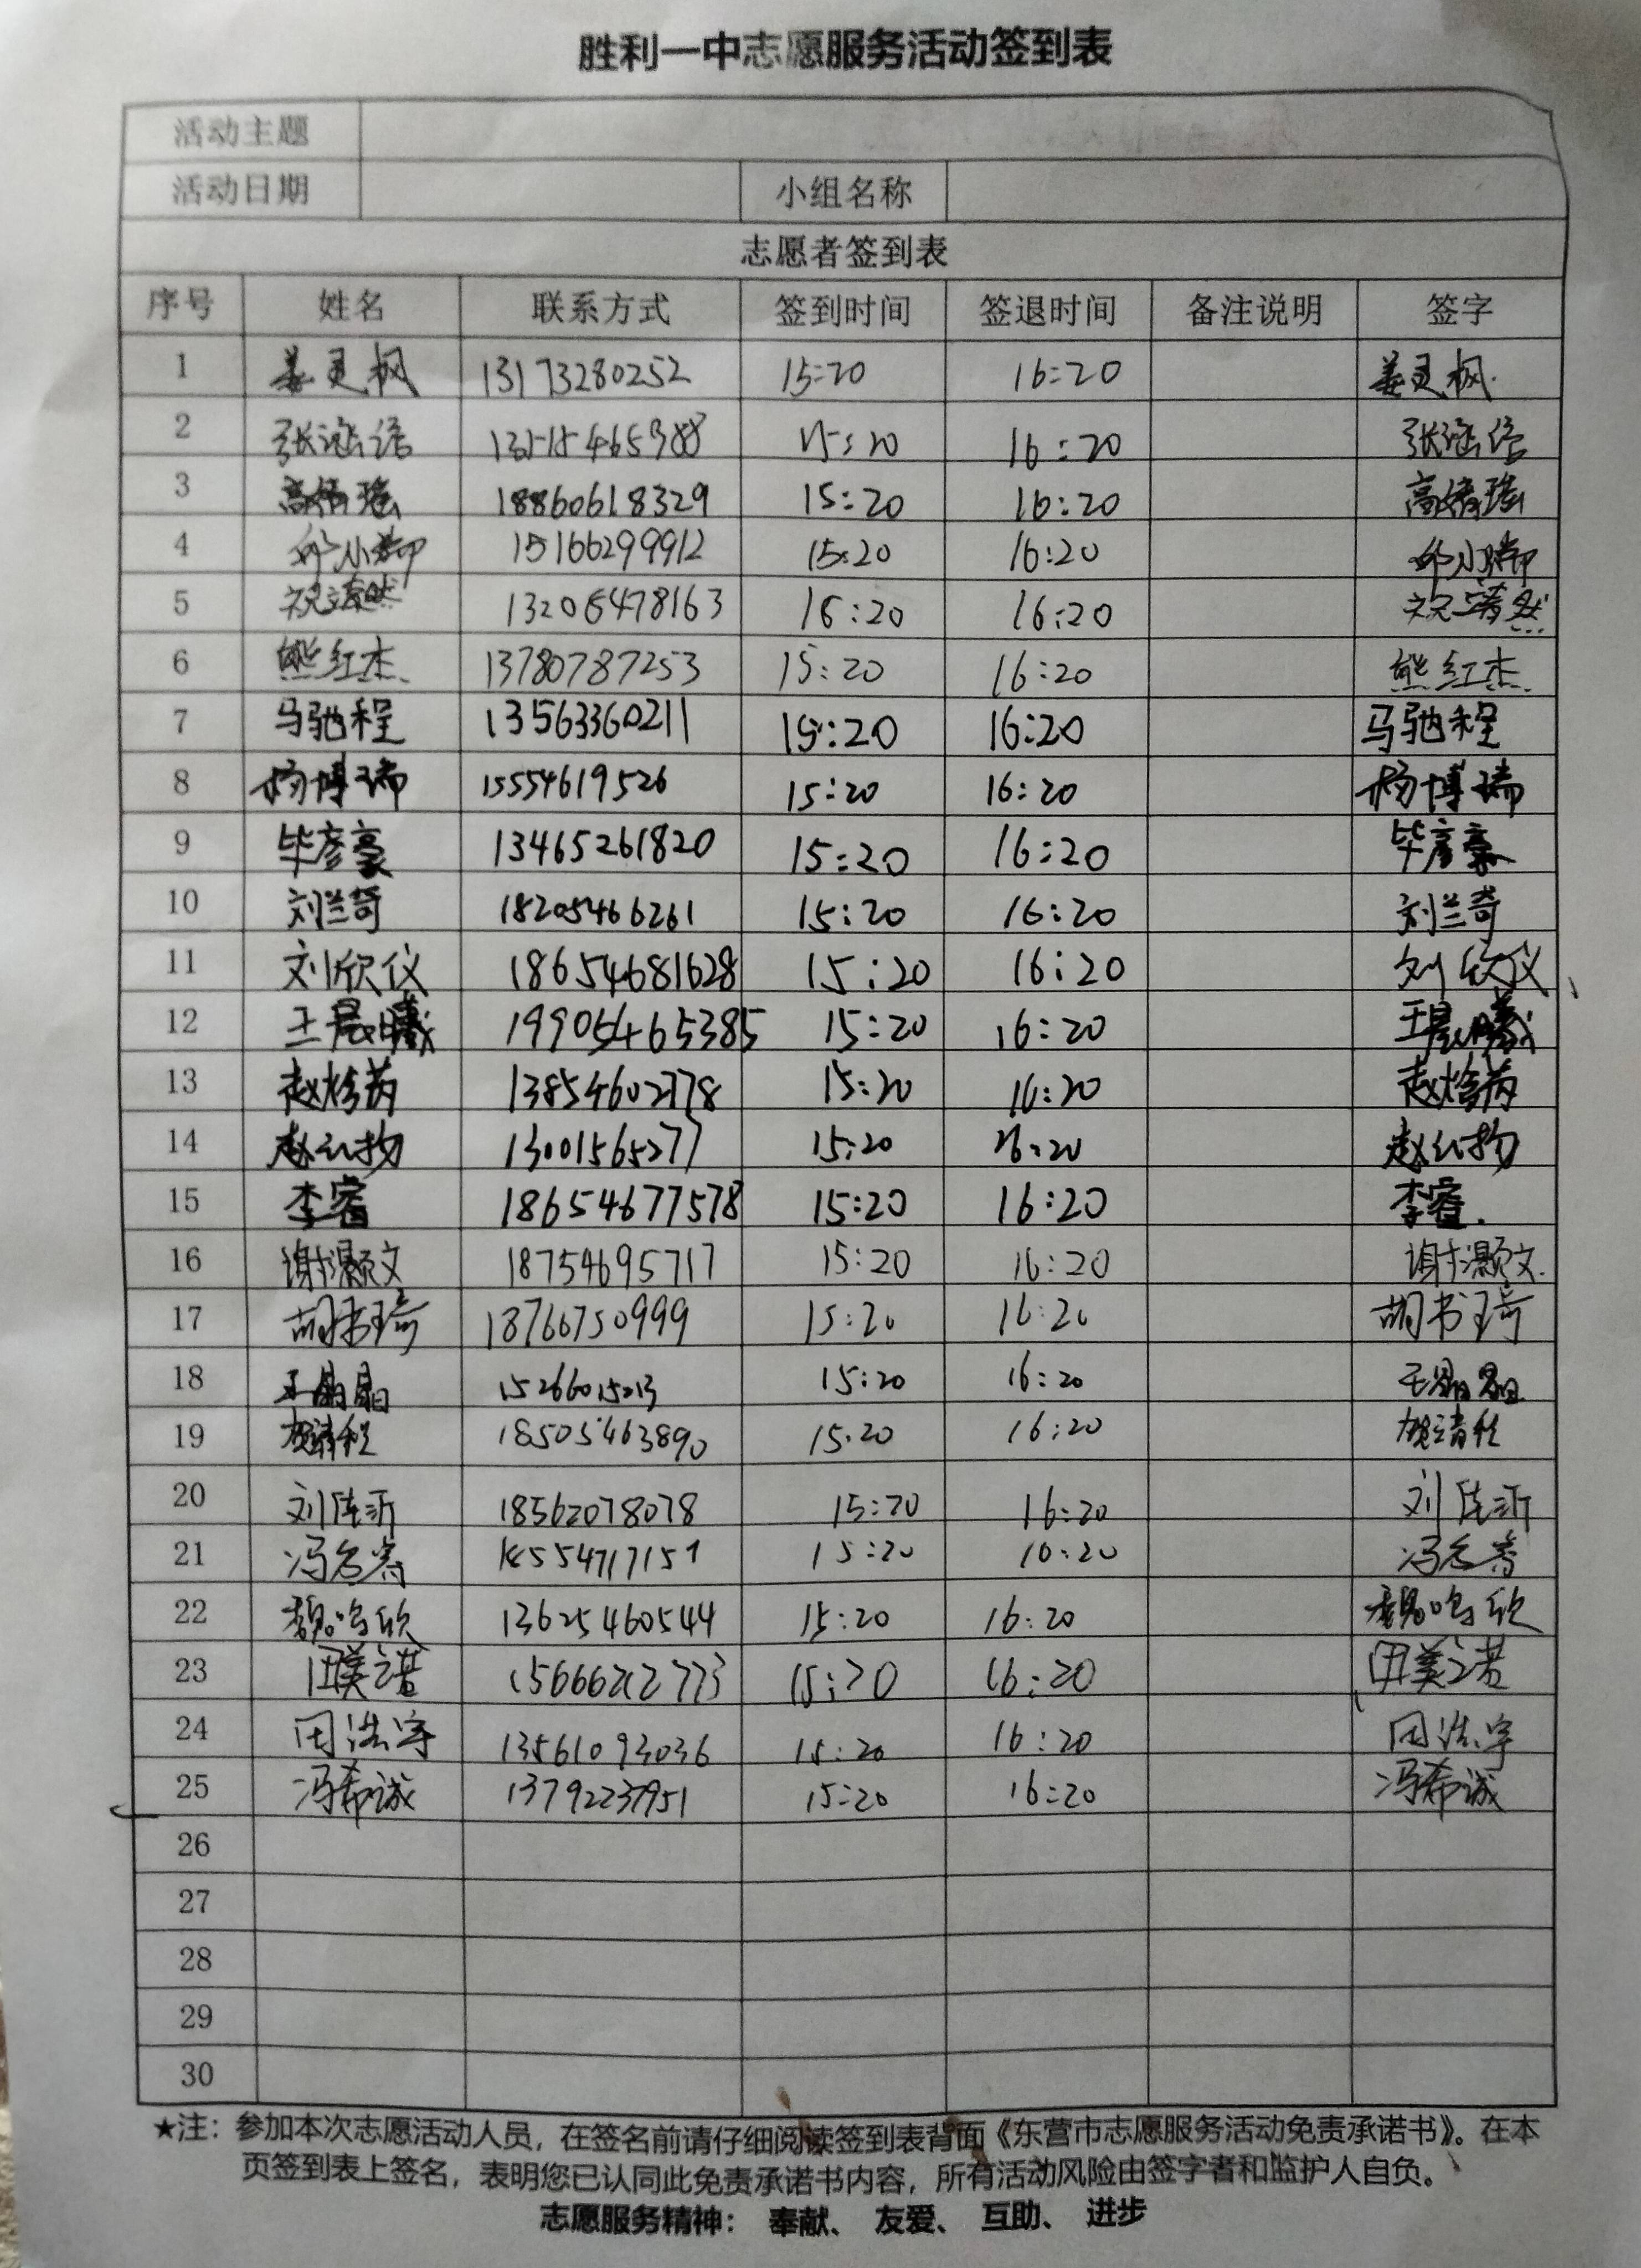 胜利一中志愿服务活动签到表
活动主题
活动日期 小组名称
志愿者签到表
序号 姓名 联系方式 签到时间 签退时间 备注说明 签字
1 姜灵枫 13173280252 15:20 16:20 姜灵枫
2 张涵语 15:20 16:20 张涵语
3 高婧瑶 18860618329 15:20 16:20 高婧瑶
4 邱小卿 15166299912 15:20 16:20 邱小卿
5 1320 478163 16:20 16:20
6 熊红杰 13780787253 15:20 16:20 熊红杰
7 马驰程 13563360211 15:20 16:20 马驰程
8 杨博瑞 15554619526 15:20 16:20 杨博瑞
9 毕彦豪 13465261820 15:20 16:20 毕彦豪
10 刘兰奇 18205466261 15:20 16:20 刘兰奇
11 刘欣仪 18654681628 15:20 16:20 刘欣仪
12 王晨曦 19905465385 15:20 16:20 王晨曦
13 赵 13854602778 15:20 16:20 赵
14 赵 13001565277 15:20 16:20 赵
15 李睿 18654677578 15:20 16:20 李睿
16 谢灏文 18754695717 15:20 16:20 谢灏文
17 胡书琦 18766750999 15:20 16:20 胡书琦
18 王晶晶 15266015213 15:20 16:20 王晶晶
19 贺靖程 18505463890 15:20 16:20 贺靖程
20 刘 沂 18562078078 15:20 16:20 刘 沂
21 冯 15:20 16:20 冯
22 魏鸣欣 13625460544 15:20 16:20 魏鸣欣
23 田美诺 15:20 16:20 田美诺
24 田浩宇 13561093036 15:20 16:20 田浩宇
25 冯希诚 13792237951 15:20 16:20 冯希诚
26
27
28
29
30
★注：参加本次志愿活动人员，在签名前请仔细阅读签到表背面《东营市志愿服务活动免责承诺书》。在本
页签到表上签名，表明您已认同此免责承诺书内容，所有活动风险由签字者和监护人自负。
志愿服务精神： 奉献、 友爱、 互助、 进步